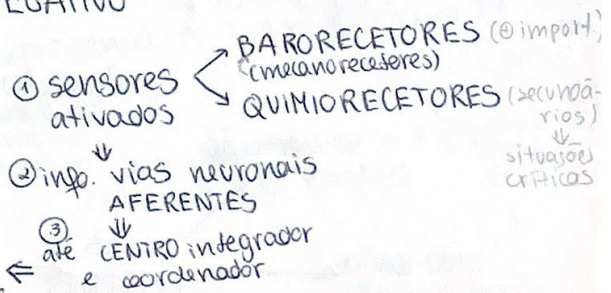 ① sensores ativados
BARORECETORES (⊕ import.)
(mecanorecetores)
QUIMIORECETORES (secundá-
rios)
⇓
situações
críticas
⇓
② info. vias neuronais
AFERENTES
⇓
③ até CENTRO integrador
⇐ e coordenador